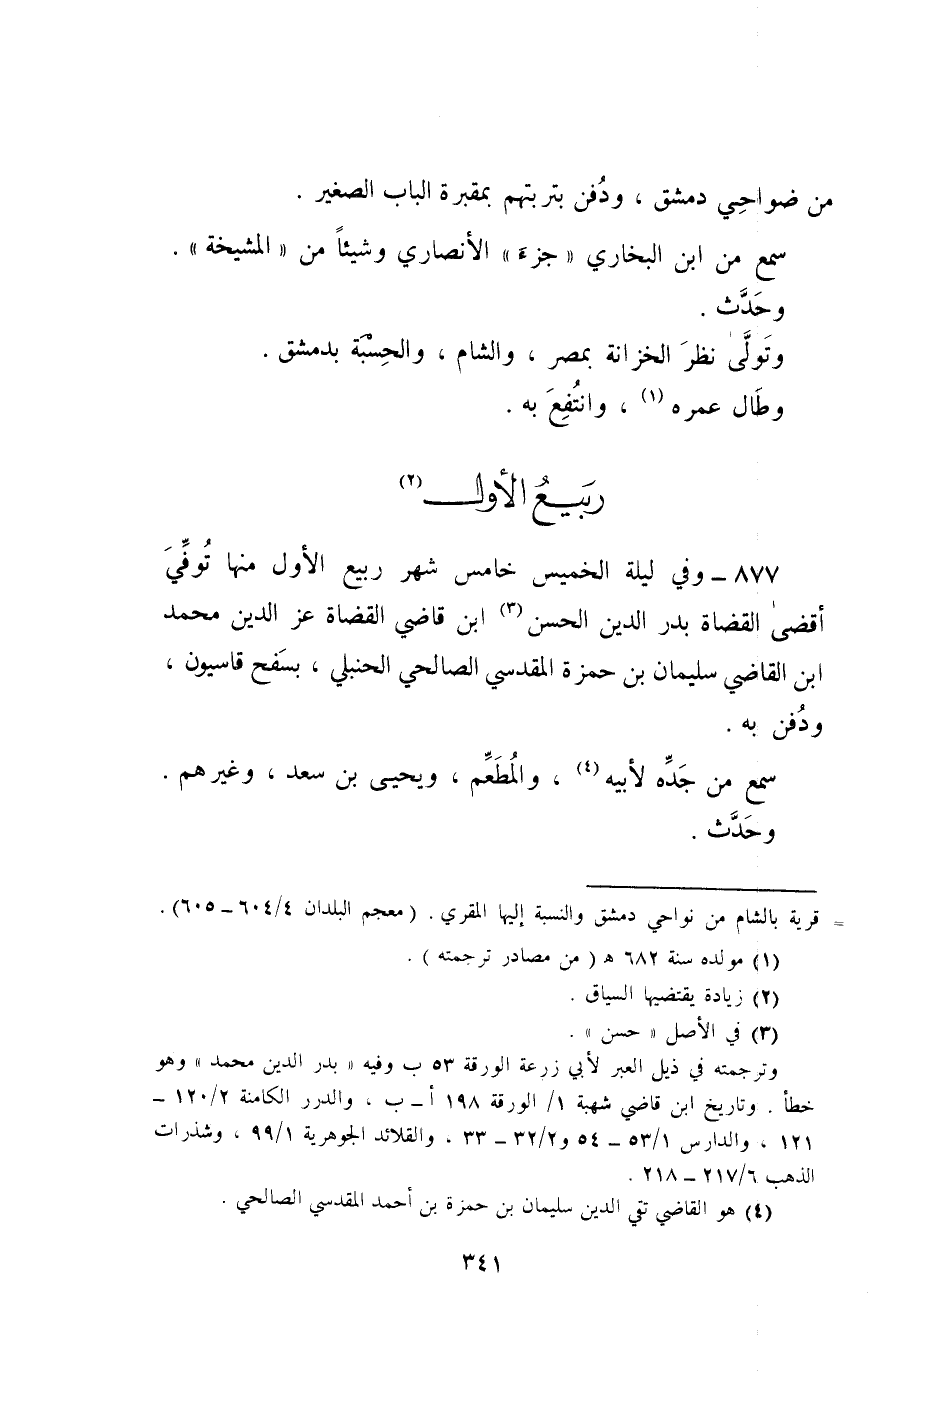 من ضواحِي دمشق ، ودُفن بتربتهم بمقبرة الباب الصغير .
سمع من ابن البخاري « جزءَ » الأنصاري وشيئاً من « المشيخة » .
وحَدَّث .
وتَولَّىٰ نظرَ الخزانة بمصر ، والشام ، والحِسْبَة بدمشق .
وطَال عمره (١) ، وانتُفِعَ به .
ربَيعُ الأول (٢)
٨٧٧ ـ وفي ليلة الخميس خامس شهر ربيع الأول منها تُوفِّيَ
أقضىٰ القضاة بدر الدين الحسن (٣) ابن قاضي القضاة عز الدين محمد
ابن القاضي سليمان بن حمزة المقدسي الصالحي الحنبلي ، بسَفح قاسيون ،
ودُفن به .
سمع من جَدِّه لأبيه (٤) ، والمُطَعِّم ، ويحيى بن سعد ، وغيرهم .
وحَدَّث .
= قرية بالشام من نواحي دمشق والنسبة إليها المقري . ( معجم البلدان ٦٠٤/٤ ـ ٦٠٥) .
(١) مولده سنة ٦٨٢ ه ( من مصادر ترجمته ) .
(٢) زيادة يقتضيها السياق .
(٣) في الأصل « حسن » .
وترجمته في ذيل العبر لأبي زرعة الورقة ٥٣ ب وفيه « بدر الدين محمد » وهو
خطأ . وتاريخ ابن قاضي شهبة ١/ الورقة ١٩٨ أ ـ ب ، والدرر الكامنة ١٢٠/٢ ـ
١٢١ ، والدارس ٥٣/١ ـ ٥٤ و٣٢/٢ ـ ٣٣ ، والقلائد الجوهرية ٩٩/١ ، وشذرات
الذهب ٢١٧/٦ ـ ٢١٨ .
(٤) هو القاضي تقي الدين سليمان بن حمزة بن أحمد المقدسي الصالحي .
٣٤١